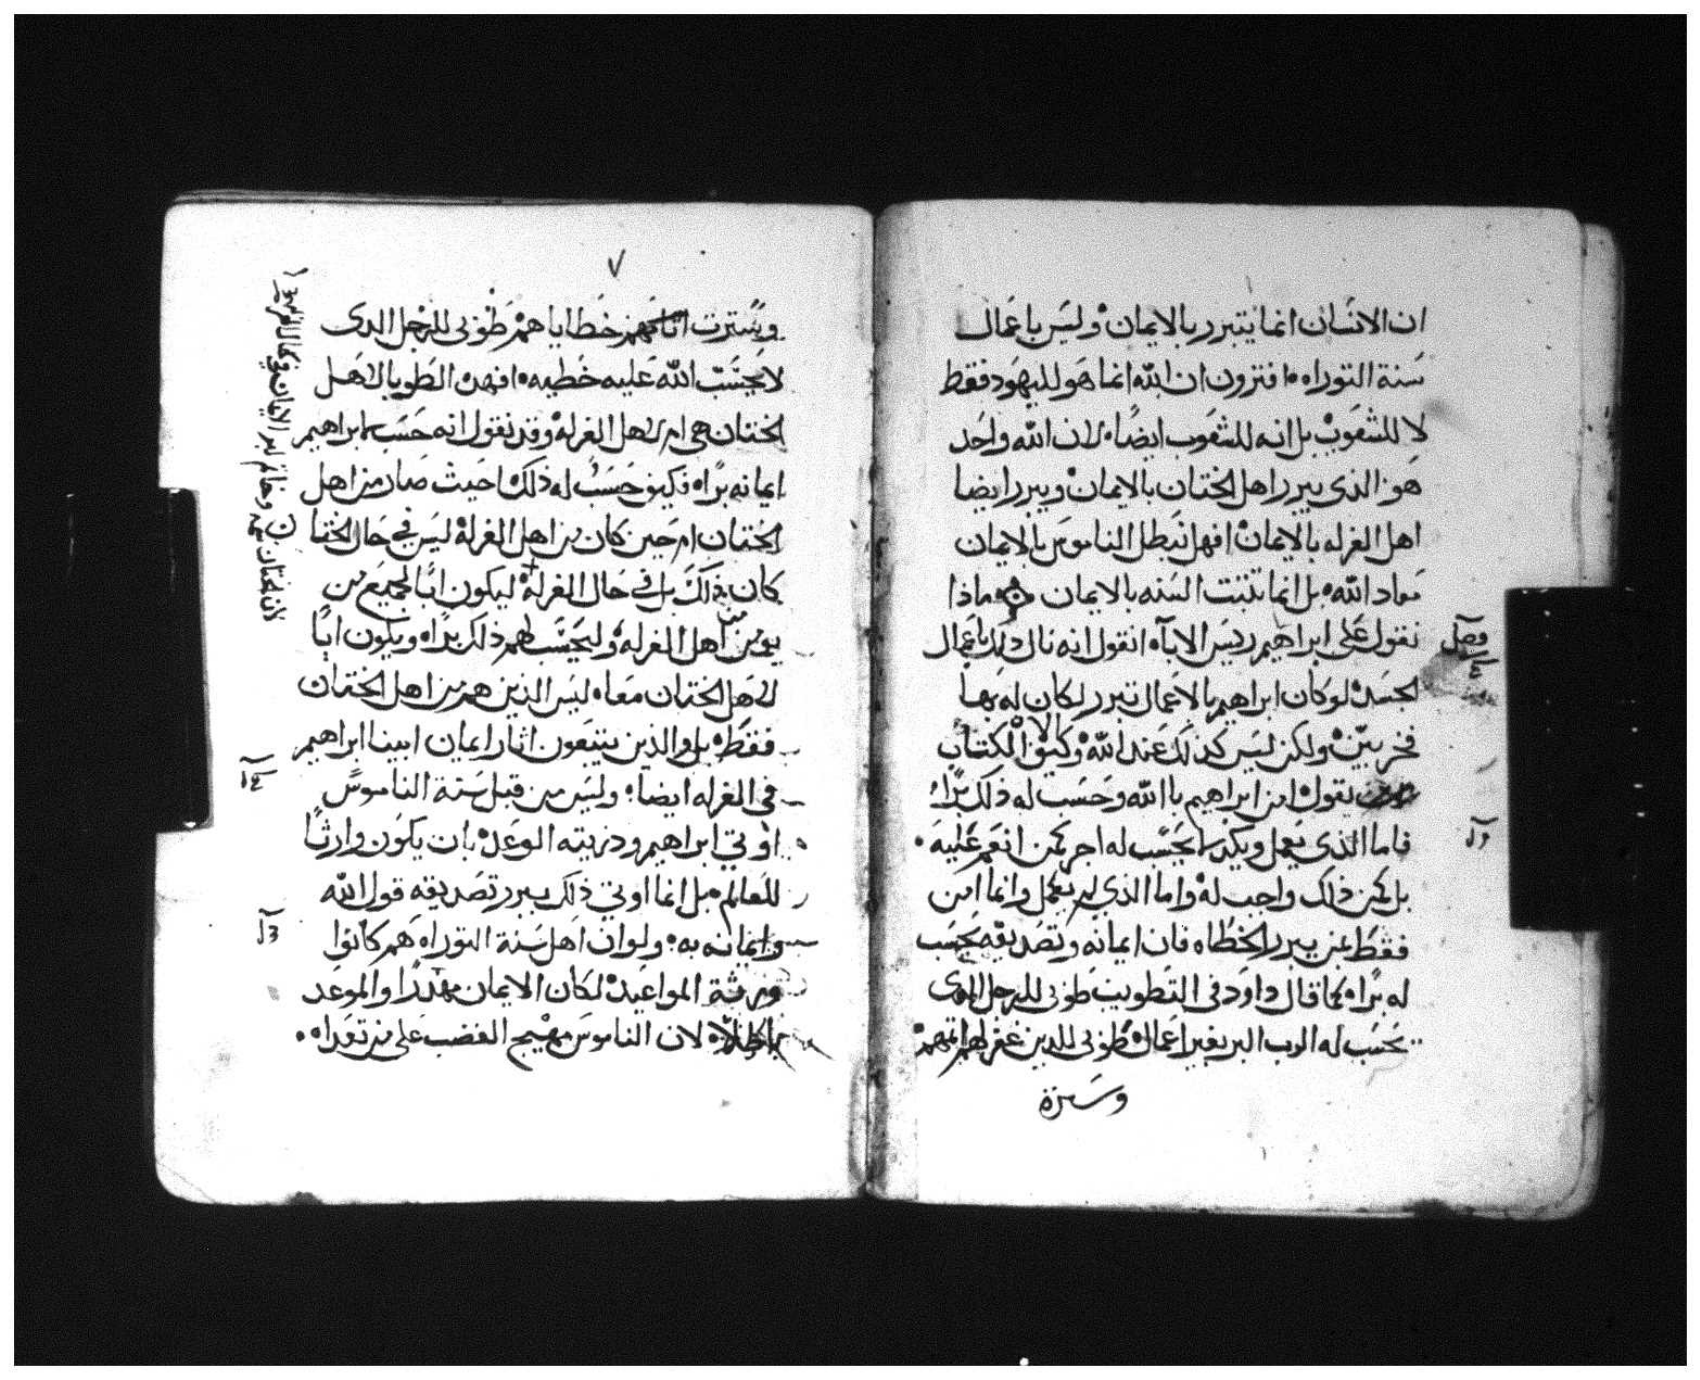 ان الانسان انما يتبرر بالايمان وليس باعمال
سنة التوراه افترون ان الله انما هو لليهود فقط
لا للشعوب بل انه للشعوب ايضا لان الله واحد
هو الذي يبرر اهل الختان بالايمان ويبرر ايضا
اهل الغرله بالايمان افهل نبطل الناموس بالايمان
معاد الله بل انما نثبت السنه بالايمان ماذا
نقول على ابراهيم رييس الابآء انقول انه نال ذلك باعمال
الجسد لو كان ابراهيم بالاعمال تبرر لكان له بها
فخر ولكن ليس كذلك عند الله الكتاب
يقول امن ابراهيم بالله وحسب له ذلك برًا
فاما الذي يعمل ويكد لا يحسب له اجر كمن انعم عليه
بل كمن ذلك واجب له واما الذي لم يعمل وانما امن
فقط بمن يبرر الخطاه فان ايمانه وتصديقه يحسب
له برًا كما قال داود في التطويب طوبى للرجل الذي
يحسب له الرب البر بغير اعمال طوبى للدين غفر لهم اتمهم
وسترة
فصل
٧
وسترت خطاياهم طوبى للرجل الدى
لا يحسب الله عليه خطيه افهذه الطوبا لاهل
الختان هي ام لاهل الغرله وقد نقول انه حسب لابراهيم
ايمانه برًا فكيف حسب له ذلك احيث صار من اهل
الختان ام حين كان من اهل الغرله ليس في حال الختا
كان ذلك بل في حال الغرله ليكون ابًا لجميع من
يومن من اهل الغرله وليحسب لهم ذلك برًا ويكون ابًا
لاهل الختان معا ليس الذين هم من اهل الختان
فقط بل والذين يتبعون اثار ايمان ابينا ابراهيم
في الغرله ايضا وليس من قبل سنة الناموس
اوتي ابراهيم ودريته الوعد بان يكون وارثًا
للعالم بل انما اوتي ذلك ببرر تصديقه قول الله
وايمانه به ولو ان اهل سنة التوراه هم كانوا
ورثة المواعيد لكان الايمان مهدرًا والموعد
باطلا لان الناموس مهيج الغضب على من تعداه